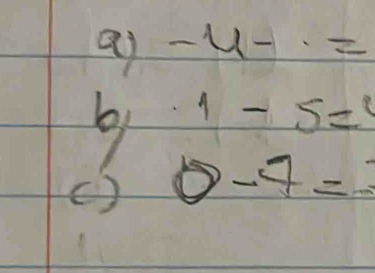 a) -4 - . =
b) .1 - 5 =
c) 0 - 7 =